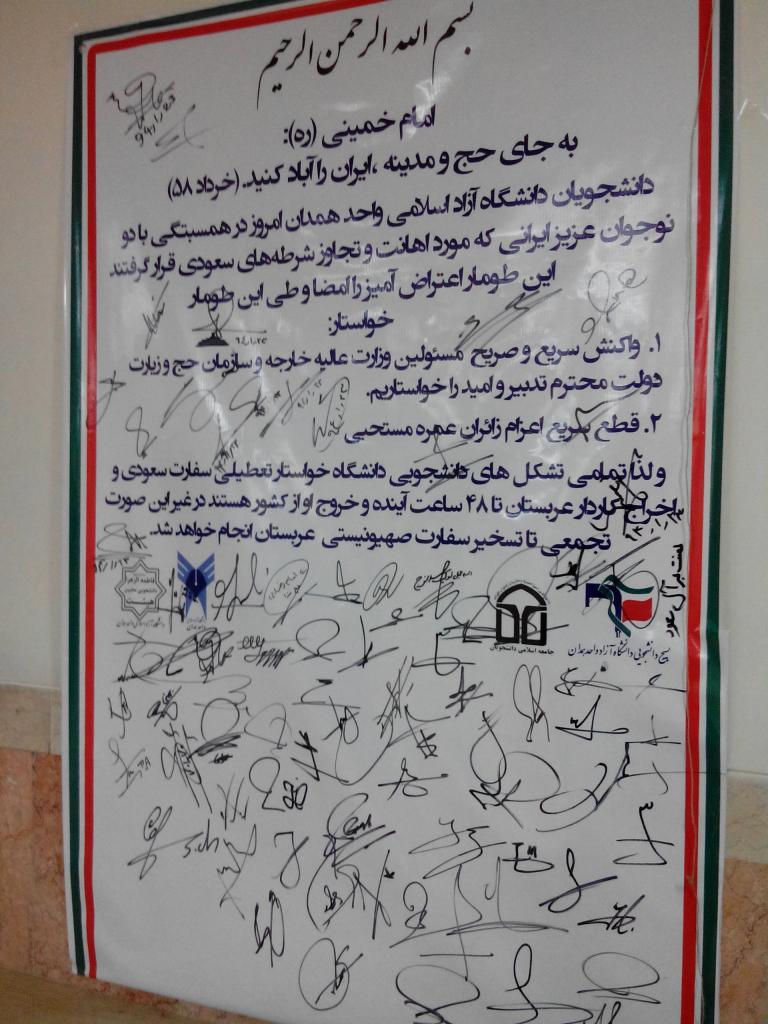 بسم الله الرحمن الرحیم
امام خمینی (ره):
به جای حج و مدینه ،ایران را آباد کنید. (خرداد ۵۸)
دانشجویان دانشگاه آزاد اسلامی واحد همدان امروز در همبستگی با دو
نوجوان عزیز ایرانی که مورد اهانت و تجاوز شرطه‌های سعودی قرار گرفتند
این طومار اعتراض آمیز را امضا و طی این طومار
خواستار:
۱. واکنش سریع و صریح مسئولین وزارت عالیه خارجه و سازمان حج و زیارت
دولت محترم تدبیر و امید را خواستاریم.
۲. قطع سریع اعزام زائران عمره مستحبی
و لذا تمامی تشکل های دانشجویی دانشگاه خواستار تعطیلی سفارت سعودی و
اخراج کاردار عربستان تا ۴۸ ساعت آینده و خروج او از کشور هستند در غیر این صورت
تجمعی تا تسخیر سفارت صهیونیستی عربستان انجام خواهد شد.
لعنت بر آل سعود
فاطمه الزهرا
جامعه اسلامی دانشجویان
بسیج دانشجویی دانشگاه آزاد واحد همدان